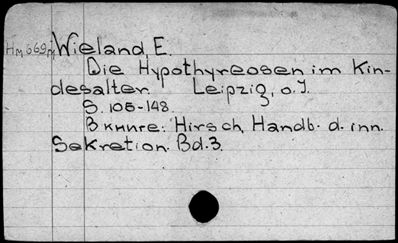 Wieland, E.
Die Hypothyreosen im Kin-
desalter. Leipzig, o. J.
S. 105-148.
В книге: Hirsch, Handb. d. inn.
Sekretion. Bd. 3.